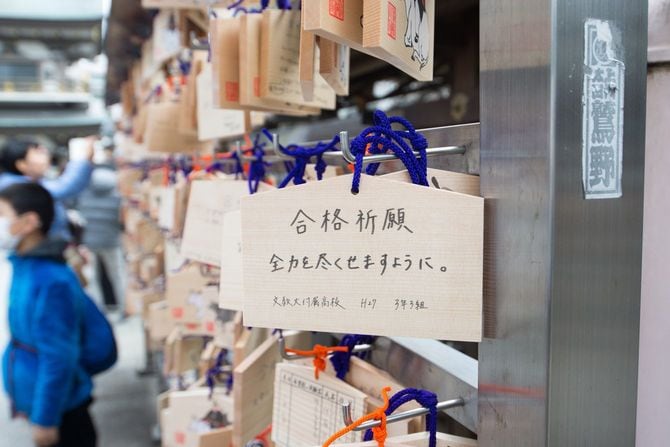 合格祈願
全力を尽くせますように。
文教大付属高校 H27 3年3組
鷺野